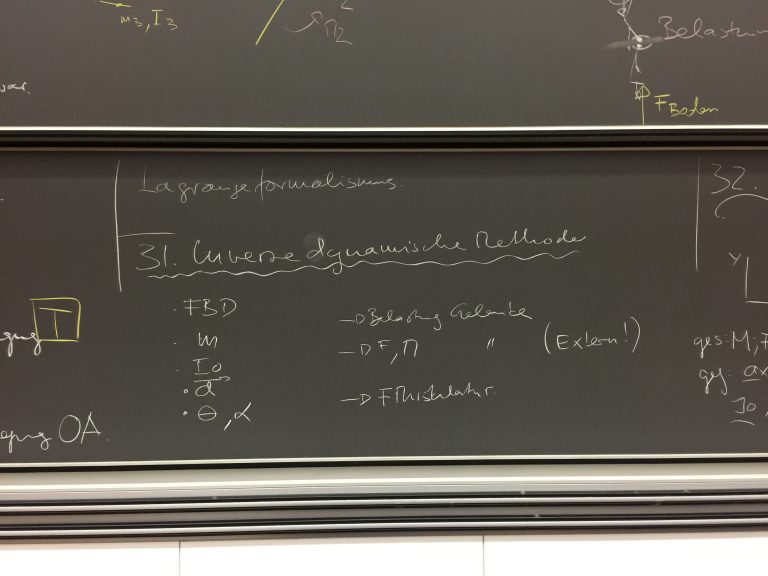 m₃, I₃
Belastun
F Boden
Lagrangeformalismus.
31. Inverse dynamische Methode
· FBD → Belastung Gelenke
· m → F, M " (Extern!)
· I₀
· d → F Muskulatur.
· θ, α
I
OA.
32.
y
ges: M; F
geg: ax
I₀,